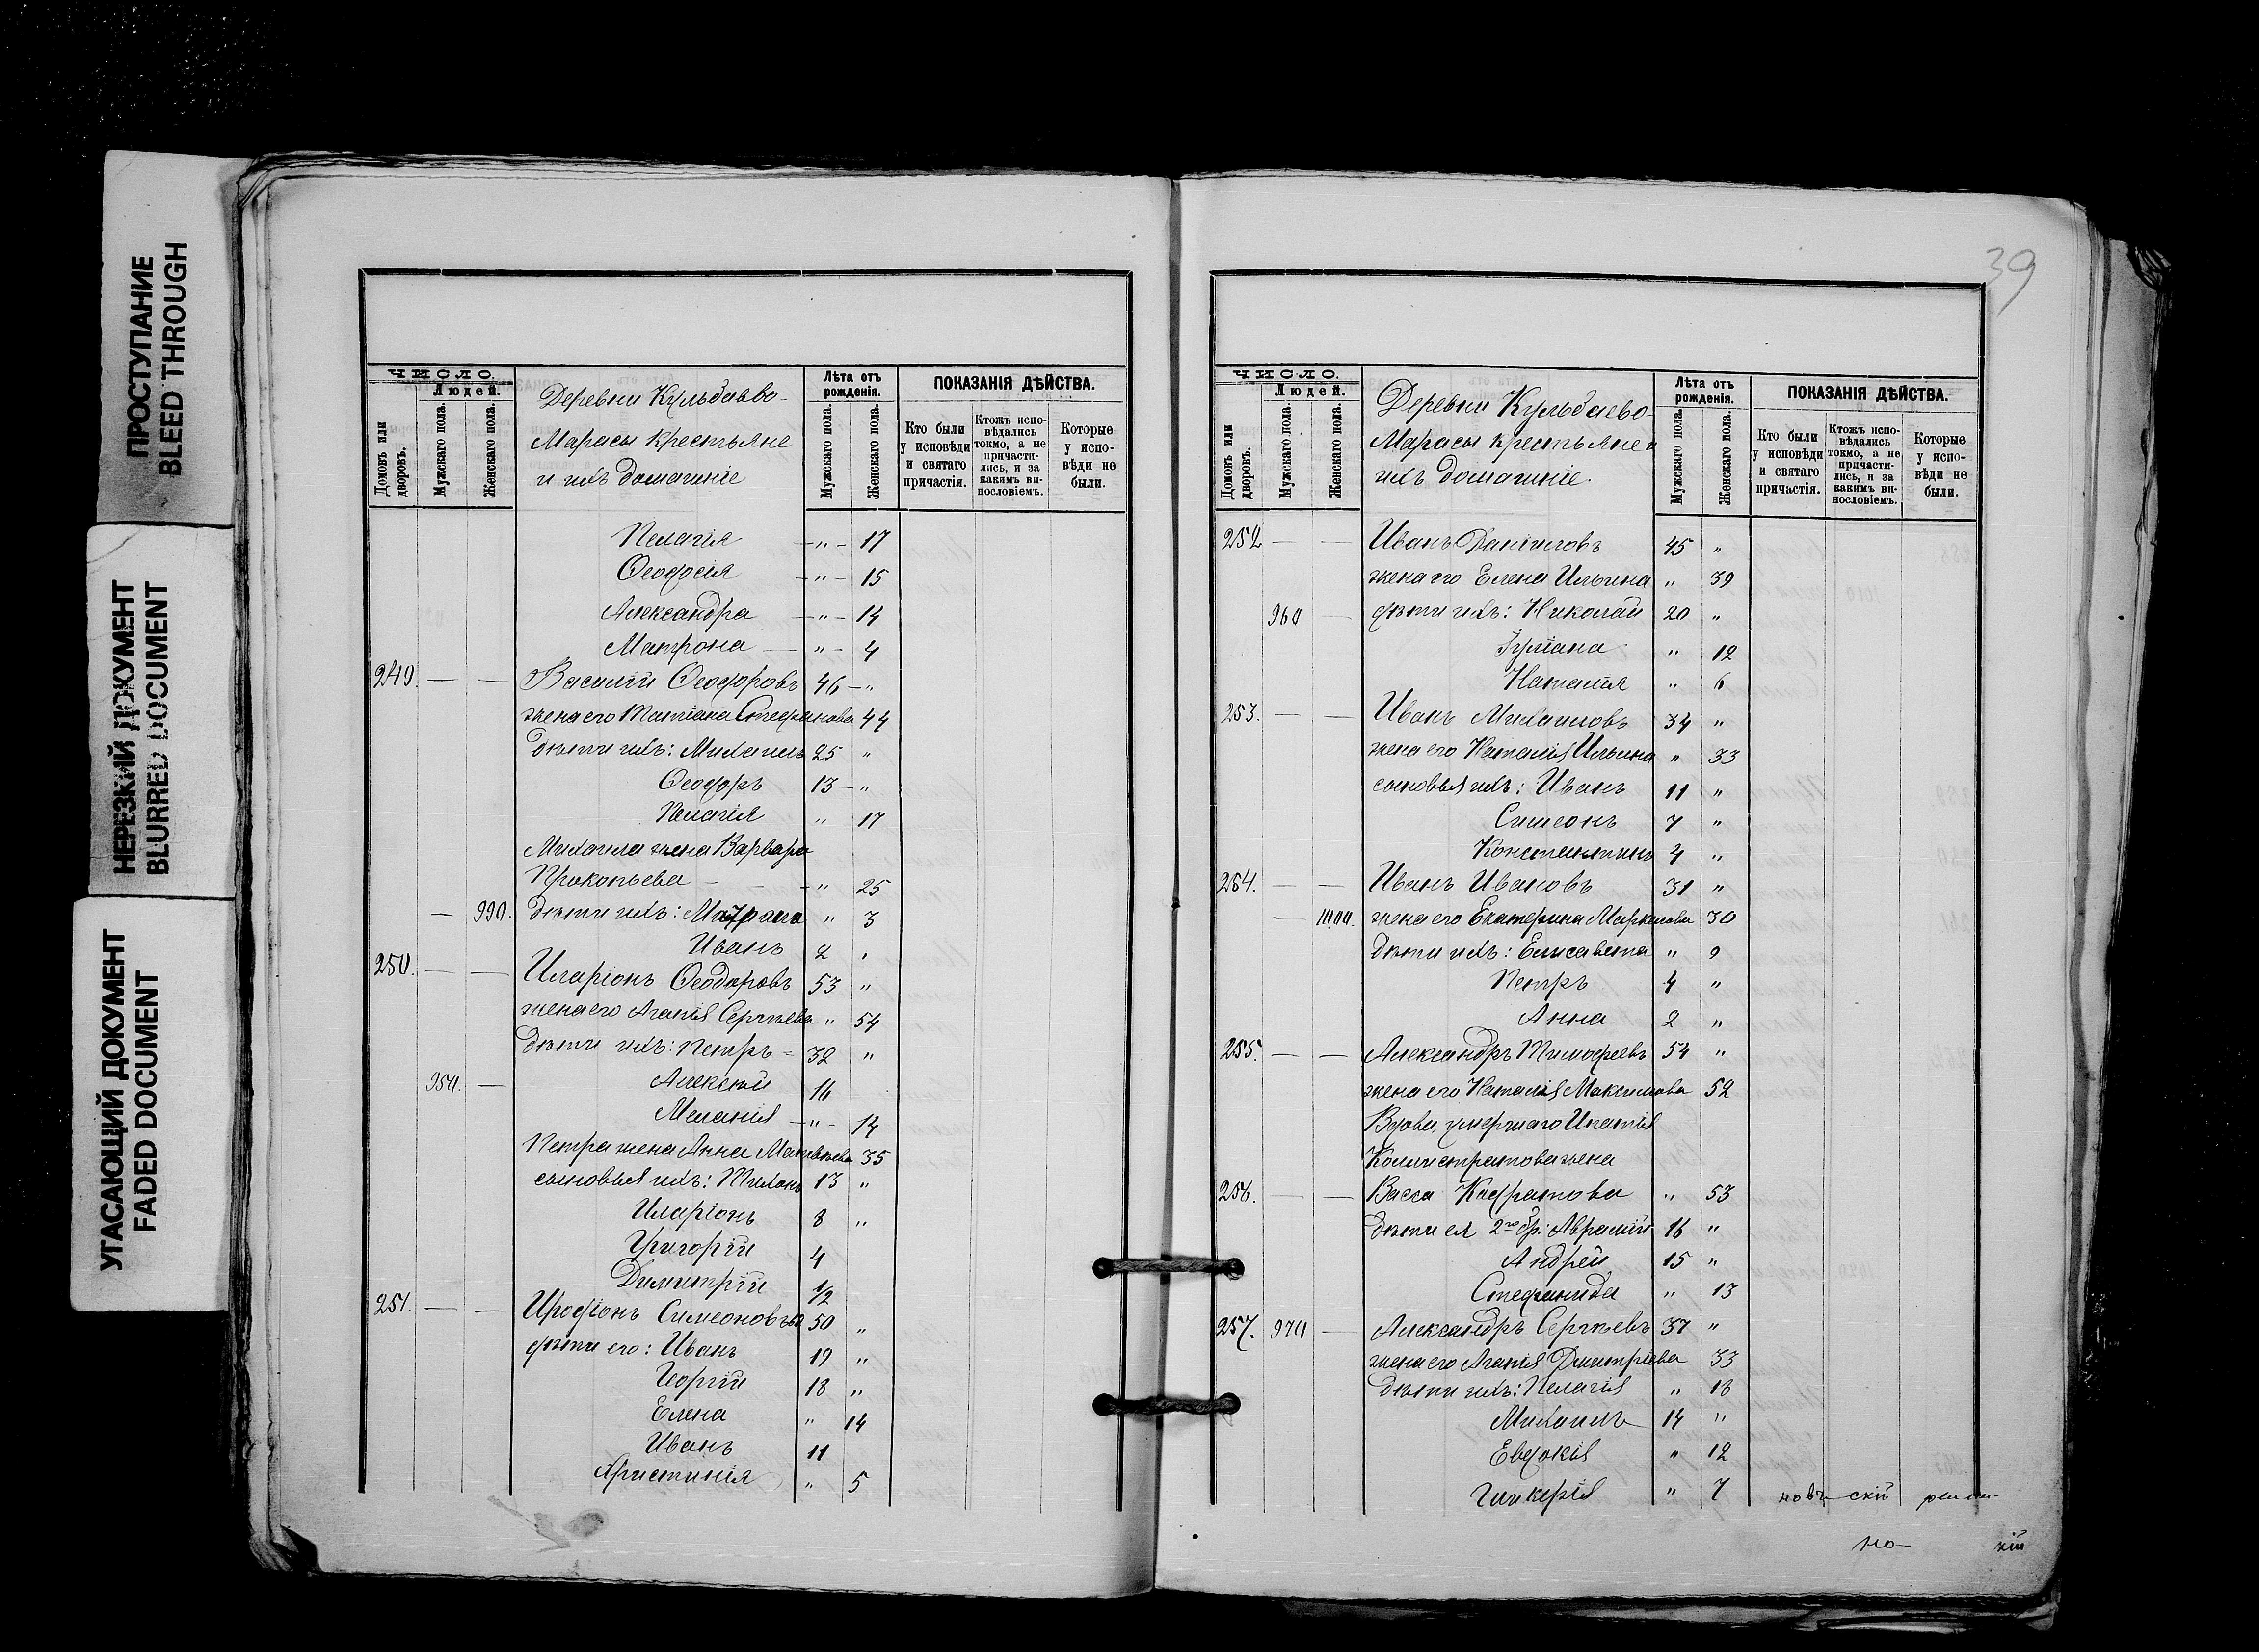 ПРОСТУПАНИЕ
BLEED THROUGH
НЕРЕЗКИЙ ДОКУМЕНТ
BLURRED DOCUMENT
УГАСАЮЩИЙ ДОКУМЕНТ
FADED DOCUMENT
ЧИСЛО.
Людей.
Домовъ или дворовъ.
Мужскаго пола.
Женскаго пола.
Деревни Кульбаево-
Марасы крестьяне
и ихъ домашніе
Лѣта отъ рожденія.
Мужскаго пола.
Женскаго пола.
ПОКАЗАНІЯ ДѢЙСТВА.
Кто были у исповѣди и святаго причастія.
Ктожъ исповѣдались токмо, а не причастились, и за какимъ винословіемъ.
Которые у исповѣди не были.
Пелагія — " — 17
Ѳеодосія — " — 15
Александра — " — 14
Матрона — " — 4
249. — — Василій Ѳеодоровъ 46 — "
жена его Татіана Стефанова 44
дѣти ихъ: Михаилъ 25 "
Ѳеодоръ 13 — "
Пелагія " 17
Михаила жена Варвара
Прокопьева — — " 25
— 990. дѣти ихъ: Матрона " 3
Иванъ 2 "
250. — — Иларіонъ Ѳеодоровъ 53 "
жена его Агапія Сергѣева " 54
дѣти ихъ: Петръ 32 "
950. — Алексій 16
Меланія — " — 14
Петра жена Анна Матвѣева 35
сыновья ихъ: Тихонъ 13 "
Иларіонъ 8 "
Григорій 4
Димитрій 1/2
251. — — Иродіонъ Симеоновъ 50 "
дѣти его: Иванъ 19 "
Георгій 18 "
Елена " 14
Иванъ 11
Христинія " 5
39
ЧИСЛО.
Людей.
Домовъ или дворовъ.
Мужскаго пола.
Женскаго пола.
Деревни Кульбаево
Марасы крестьяне и
ихъ домашніе.
Лѣта отъ рожденія.
Мужскаго пола.
Женскаго пола.
ПОКАЗАНІЯ ДѢЙСТВА.
Кто были у исповѣди и святаго причастія.
Ктожъ исповѣдались токмо, а не причастились, и за какимъ винословіемъ.
Которые у исповѣди не были.
252 — — Иванъ Даніиловъ 45 "
жена его Елена Ильина " 39
960 — дѣти ихъ: Николай 20 "
Іуліана " 12
Наталія " 6
253. — — Иванъ Михаиловъ 34 "
жена его Наталія Ильина " 33
сыновья ихъ: Иванъ 11 "
Симеонъ 7 "
Константинъ 4 "
254. — — Иванъ Ивановъ 31 "
— 1000. жена его Екатерина Маркелова 30
дѣти ихъ: Елисавета " 9
Петръ 4 "
Анна 2 "
255. — — Александръ Тимофеевъ 54 "
жена его Наталія Максимова 52
Вдова, умершаго Ипатія
Каллистратова жена
256. — — Васса " 53
дѣти ея 2го бр: Аврамій 16 "
Андрей 15 "
Стефанида " 13
257. 970 — Александръ Сергѣевъ 37 "
жена его Агапія Димитріева 33
дѣти ихъ: Пелагія " 18
Михаилъ 14 "
Евдокія " 12
Гликерія " 7
новъ скій
но- кій